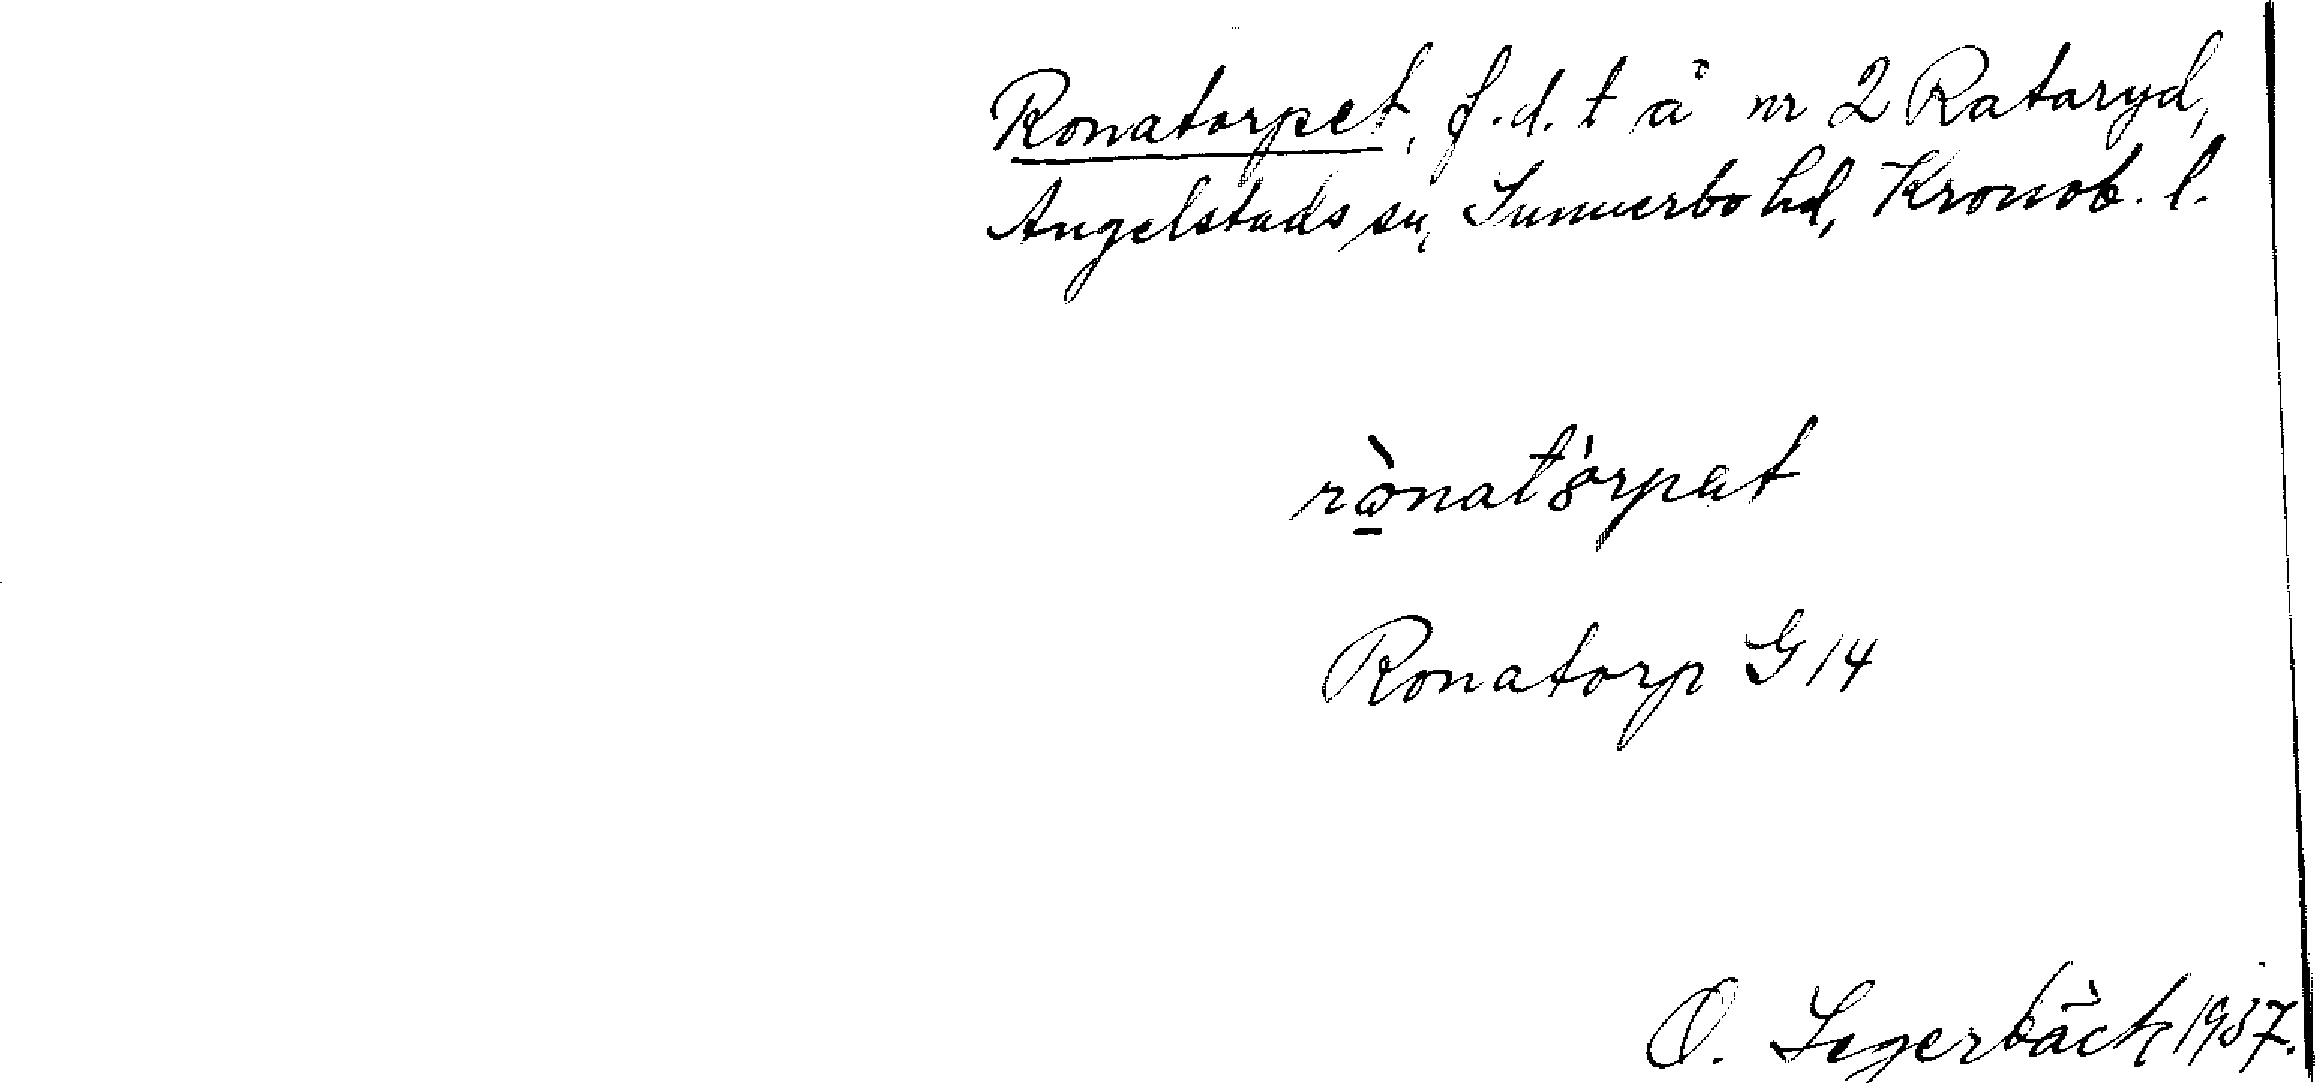 Ronatorpet, f.d. t å nr 2 Rataryd,
Angelstads sn, Sunnerbo hd, Kronob. l.
rònatòrpat
Ronatorp G 14
O. Segerbäck 1937.